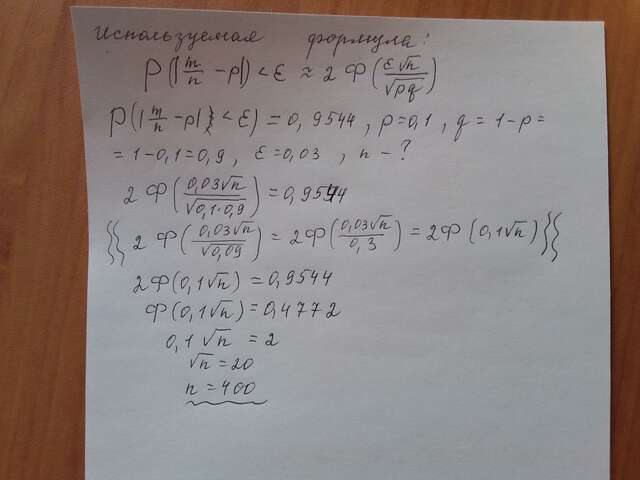 Используемая формула:
P(|m/n − p|) < ε ≈ 2Φ(ε√n/√pq)
P(|m/n − p| < ε) = 0,9544, p=0,1, q = 1−p =
= 1−0,1=0,9, ε=0,03, n − ?
2Φ(0,03√n/√0,1·0,9) = 0,9544
{{ 2Φ(0,03√n/√0,09) = 2Φ(0,03√n/0,3) = 2Φ(0,1√n) }}
2Φ(0,1√n) = 0,9544
Φ(0,1√n) = 0,4772
0,1√n = 2
√n = 20
n = 400